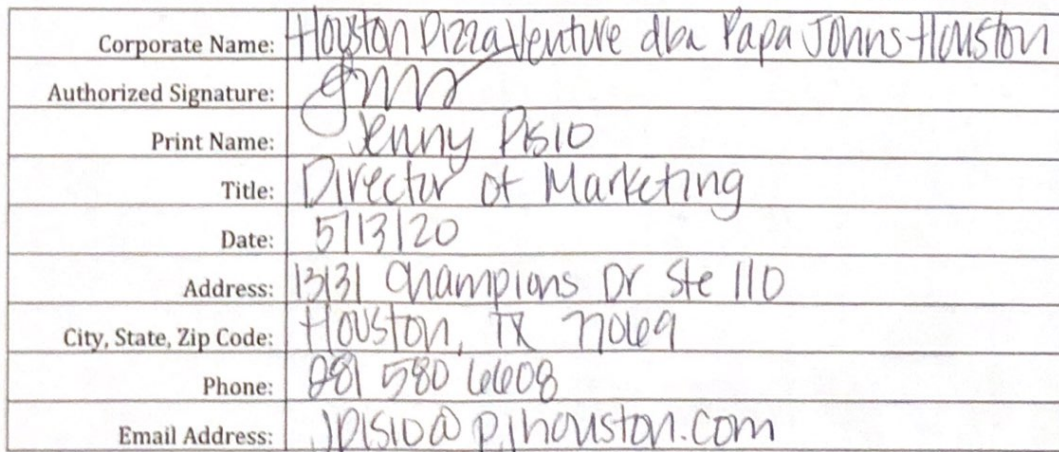 Corporate Name: Houston Pizza Venture dba Papa Johns Houston
Authorized Signature:
Print Name: Jenny Pisio
Title: Director of Marketing
Date: 5/13/20
Address: 13131 Champions Dr Ste 110
City, State, Zip Code: Houston, TX 77069
Phone: 281 580 6608
Email Address: jpisio@pjhouston.com